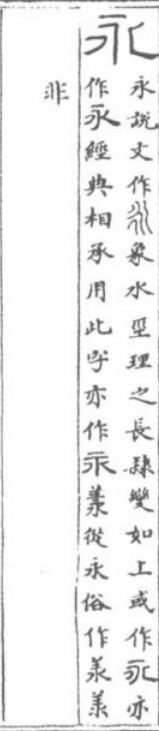 永
永說文作𣱵象水坙理之長隸變如上或作𣱵亦
作永經典相承用此字亦作𣱵羕從永俗作羕羕
非